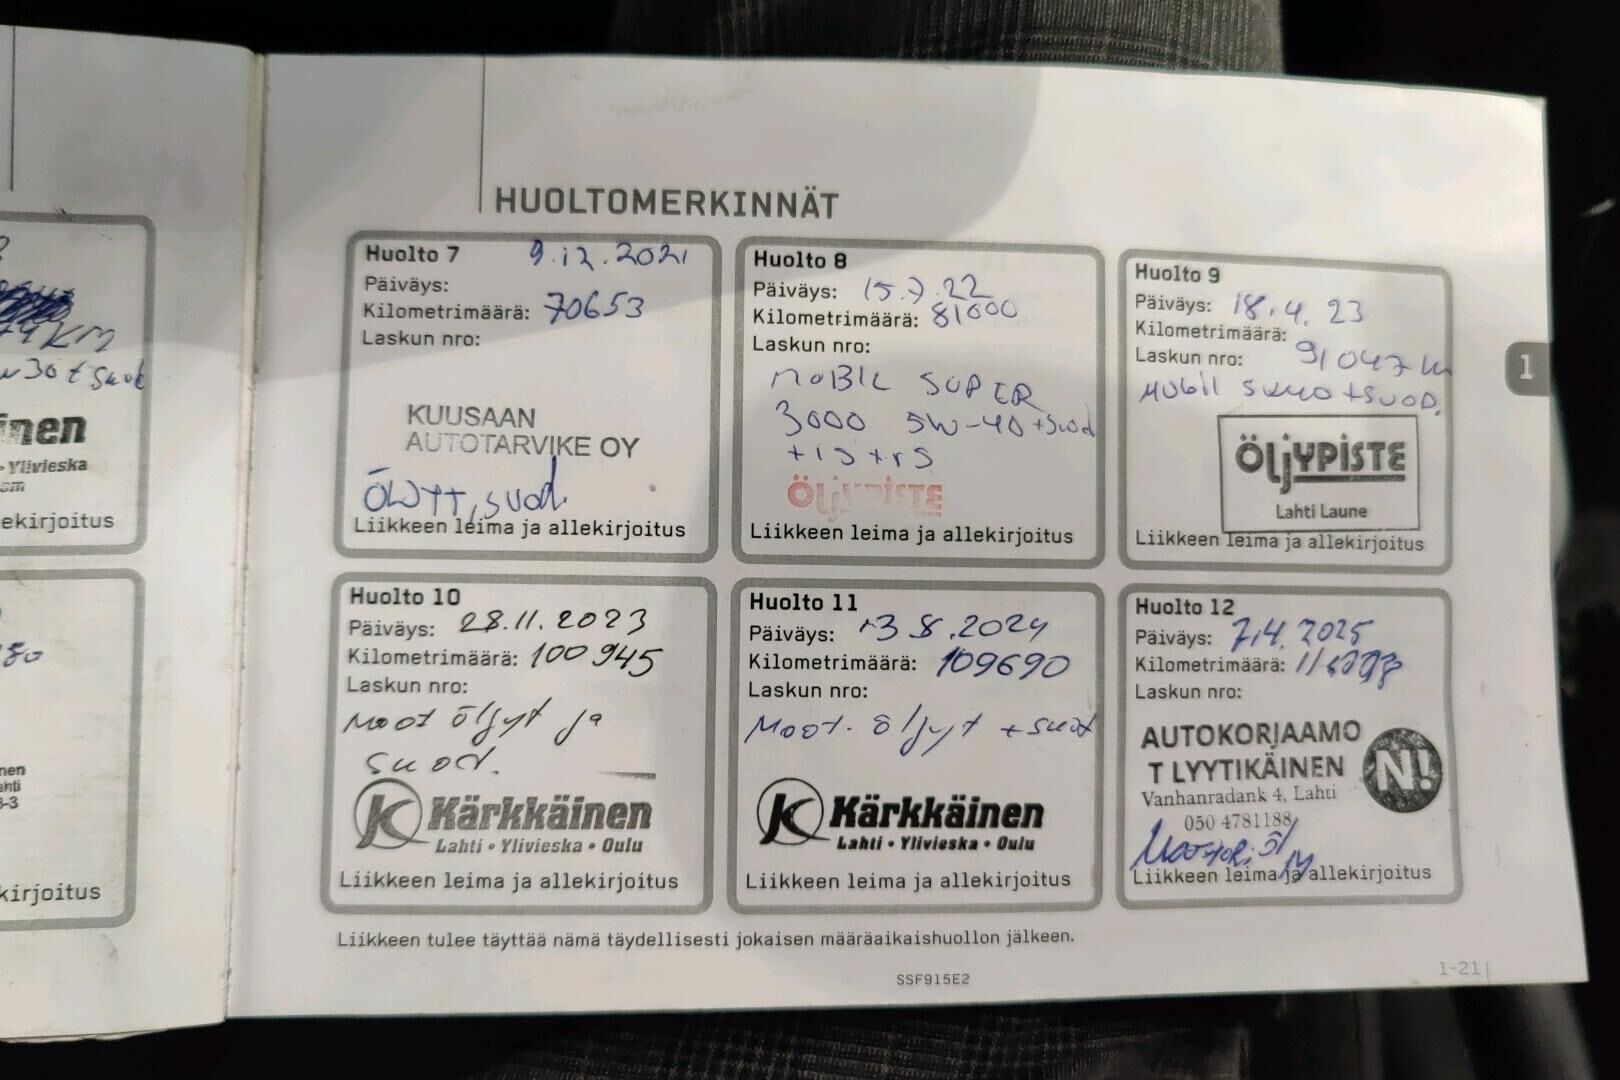 KM
30 + suod
inen
• Ylivieska
ekirjoitus
80
nen
ahti
3-3
kirjoitus
HUOLTOMERKINNÄT
Huolto 7 9.12.2021
Päiväys:
Kilometrimäärä: 70653
Laskun nro:
KUUSAAN
AUTOTARVIKE OY
ÖLJYT, suod.
Liikkeen leima ja allekirjoitus
Huolto 8
Päiväys: 15.7.22
Kilometrimäärä: 81000
Laskun nro:
MOBIL SUPER
3000 5W-40 + suod
+ is + rs
ÖLJYPISTE
Liikkeen leima ja allekirjoitus
Huolto 9
Päiväys: 18.4.23
Kilometrimäärä:
Laskun nro: 91047
MOBIL + SUOD.
ÖLJYPISTE
Lahti Laune
Liikkeen leima ja allekirjoitus
1
Huolto 10
Päiväys: 28.11.2023
Kilometrimäärä: 100945
Laskun nro:
Moot öljyt ja
suod.
K Kärkkäinen
Lahti • Ylivieska • Oulu
Liikkeen leima ja allekirjoitus
Huolto 11
Päiväys: 13.8.2024
Kilometrimäärä: 109690
Laskun nro:
Moot. öljyt + suod
K Kärkkäinen
Lahti • Ylivieska • Oulu
Liikkeen leima ja allekirjoitus
Huolto 12
Päiväys: 7.4.2025
Kilometrimäärä:
Laskun nro:
AUTOKORJAAMO
T LYYTIKÄINEN
N!
Vanhanradank 4, Lahti
050 4781188
Moottoriöljy
Liikkeen leima ja allekirjoitus
Liikkeen tulee täyttää nämä täydellisesti jokaisen määräaikaishuollon jälkeen.
SSF915E2
1-21